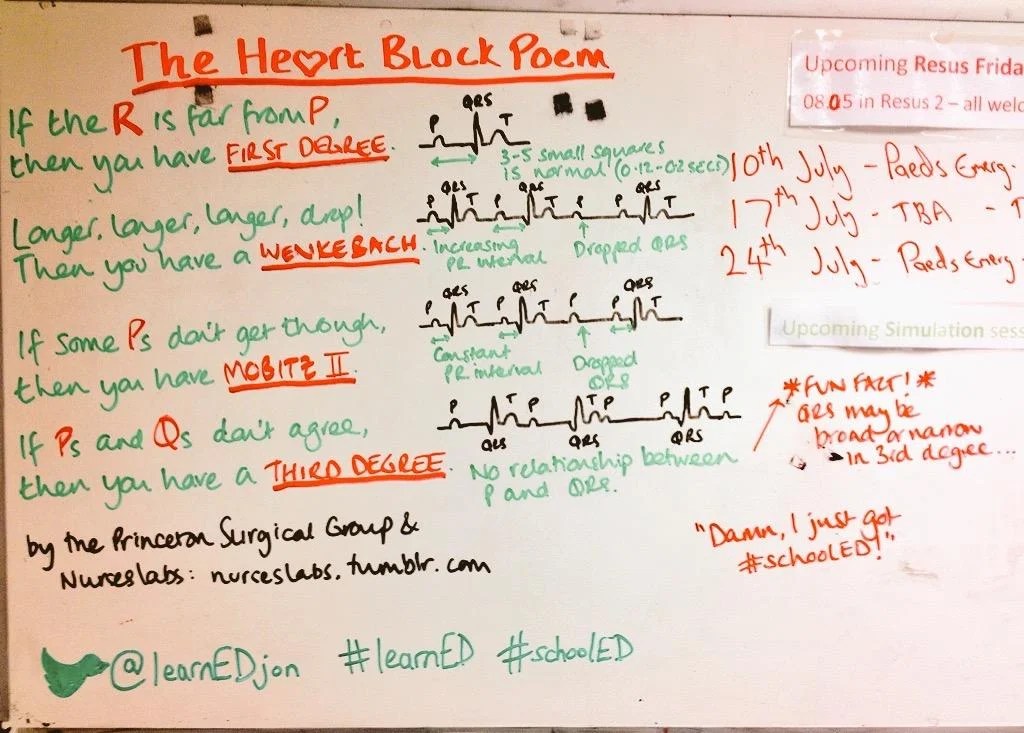 The Heart Block Poem
If the R is far from P,
then you have FIRST DEGREE.
P QRS T
3-5 small squares
is normal (0.12-0.2secs)
Longer, longer, longer, drop!
Then you have a WENKEBACH.
P QRS T P QRS T P P QRS T
Increasing
PR interval
Dropped QRS
If some Ps don't get though,
then you have MOBITZ II.
P QRS T P QRS T P P QRS T
Constant
PR interval
Dropped
QRS
If Ps and Qs don't agree,
then you have a THIRD DEGREE.
P T P T P P T P
QRS QRS QRS
No relationship between
P and QRS.
by the Princeton Surgical Group &
Nurseslabs: nurseslabs.tumblr.com
@learnEDjon #learnED #schoolED
Upcoming Resus Frida
08.05 in Resus 2 – all welc
10th July - Paeds Emerg.
17th July - TBA - T
24th July - Paeds Emerg -
Upcoming Simulation sess
*FUN FACT!*
QRS may be
broad or narrow
in 3rd degree...
"Damn, I just got
#schoolED!"